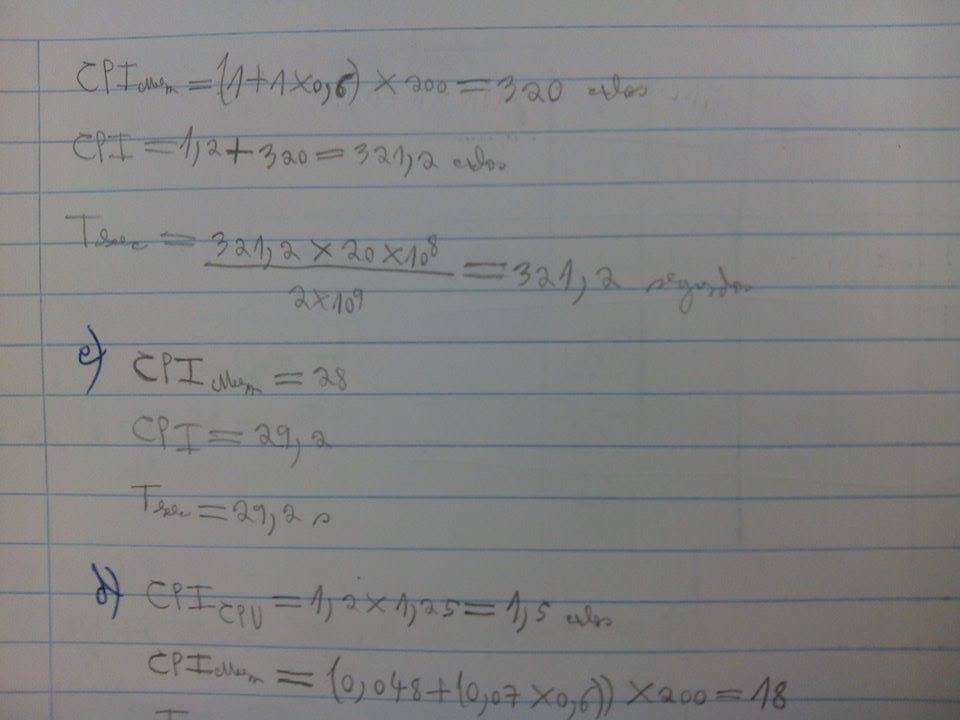 CPI Mem = (1+1×0,6) × 200 = 320 ciclos
CPI = 1,2 + 320 = 321,2 ciclos
Texec = 321,2 × 20 × 10^8 / 2×10^9 = 321,2 segundos
c) CPI Mem = 28
CPI = 29,2
Texec = 29,2 s
d) CPI CPU = 1,2 × 1,25 = 1,5 ciclos
CPI Mem = (0,048 + (0,07 × 0,6)) × 200 = 18